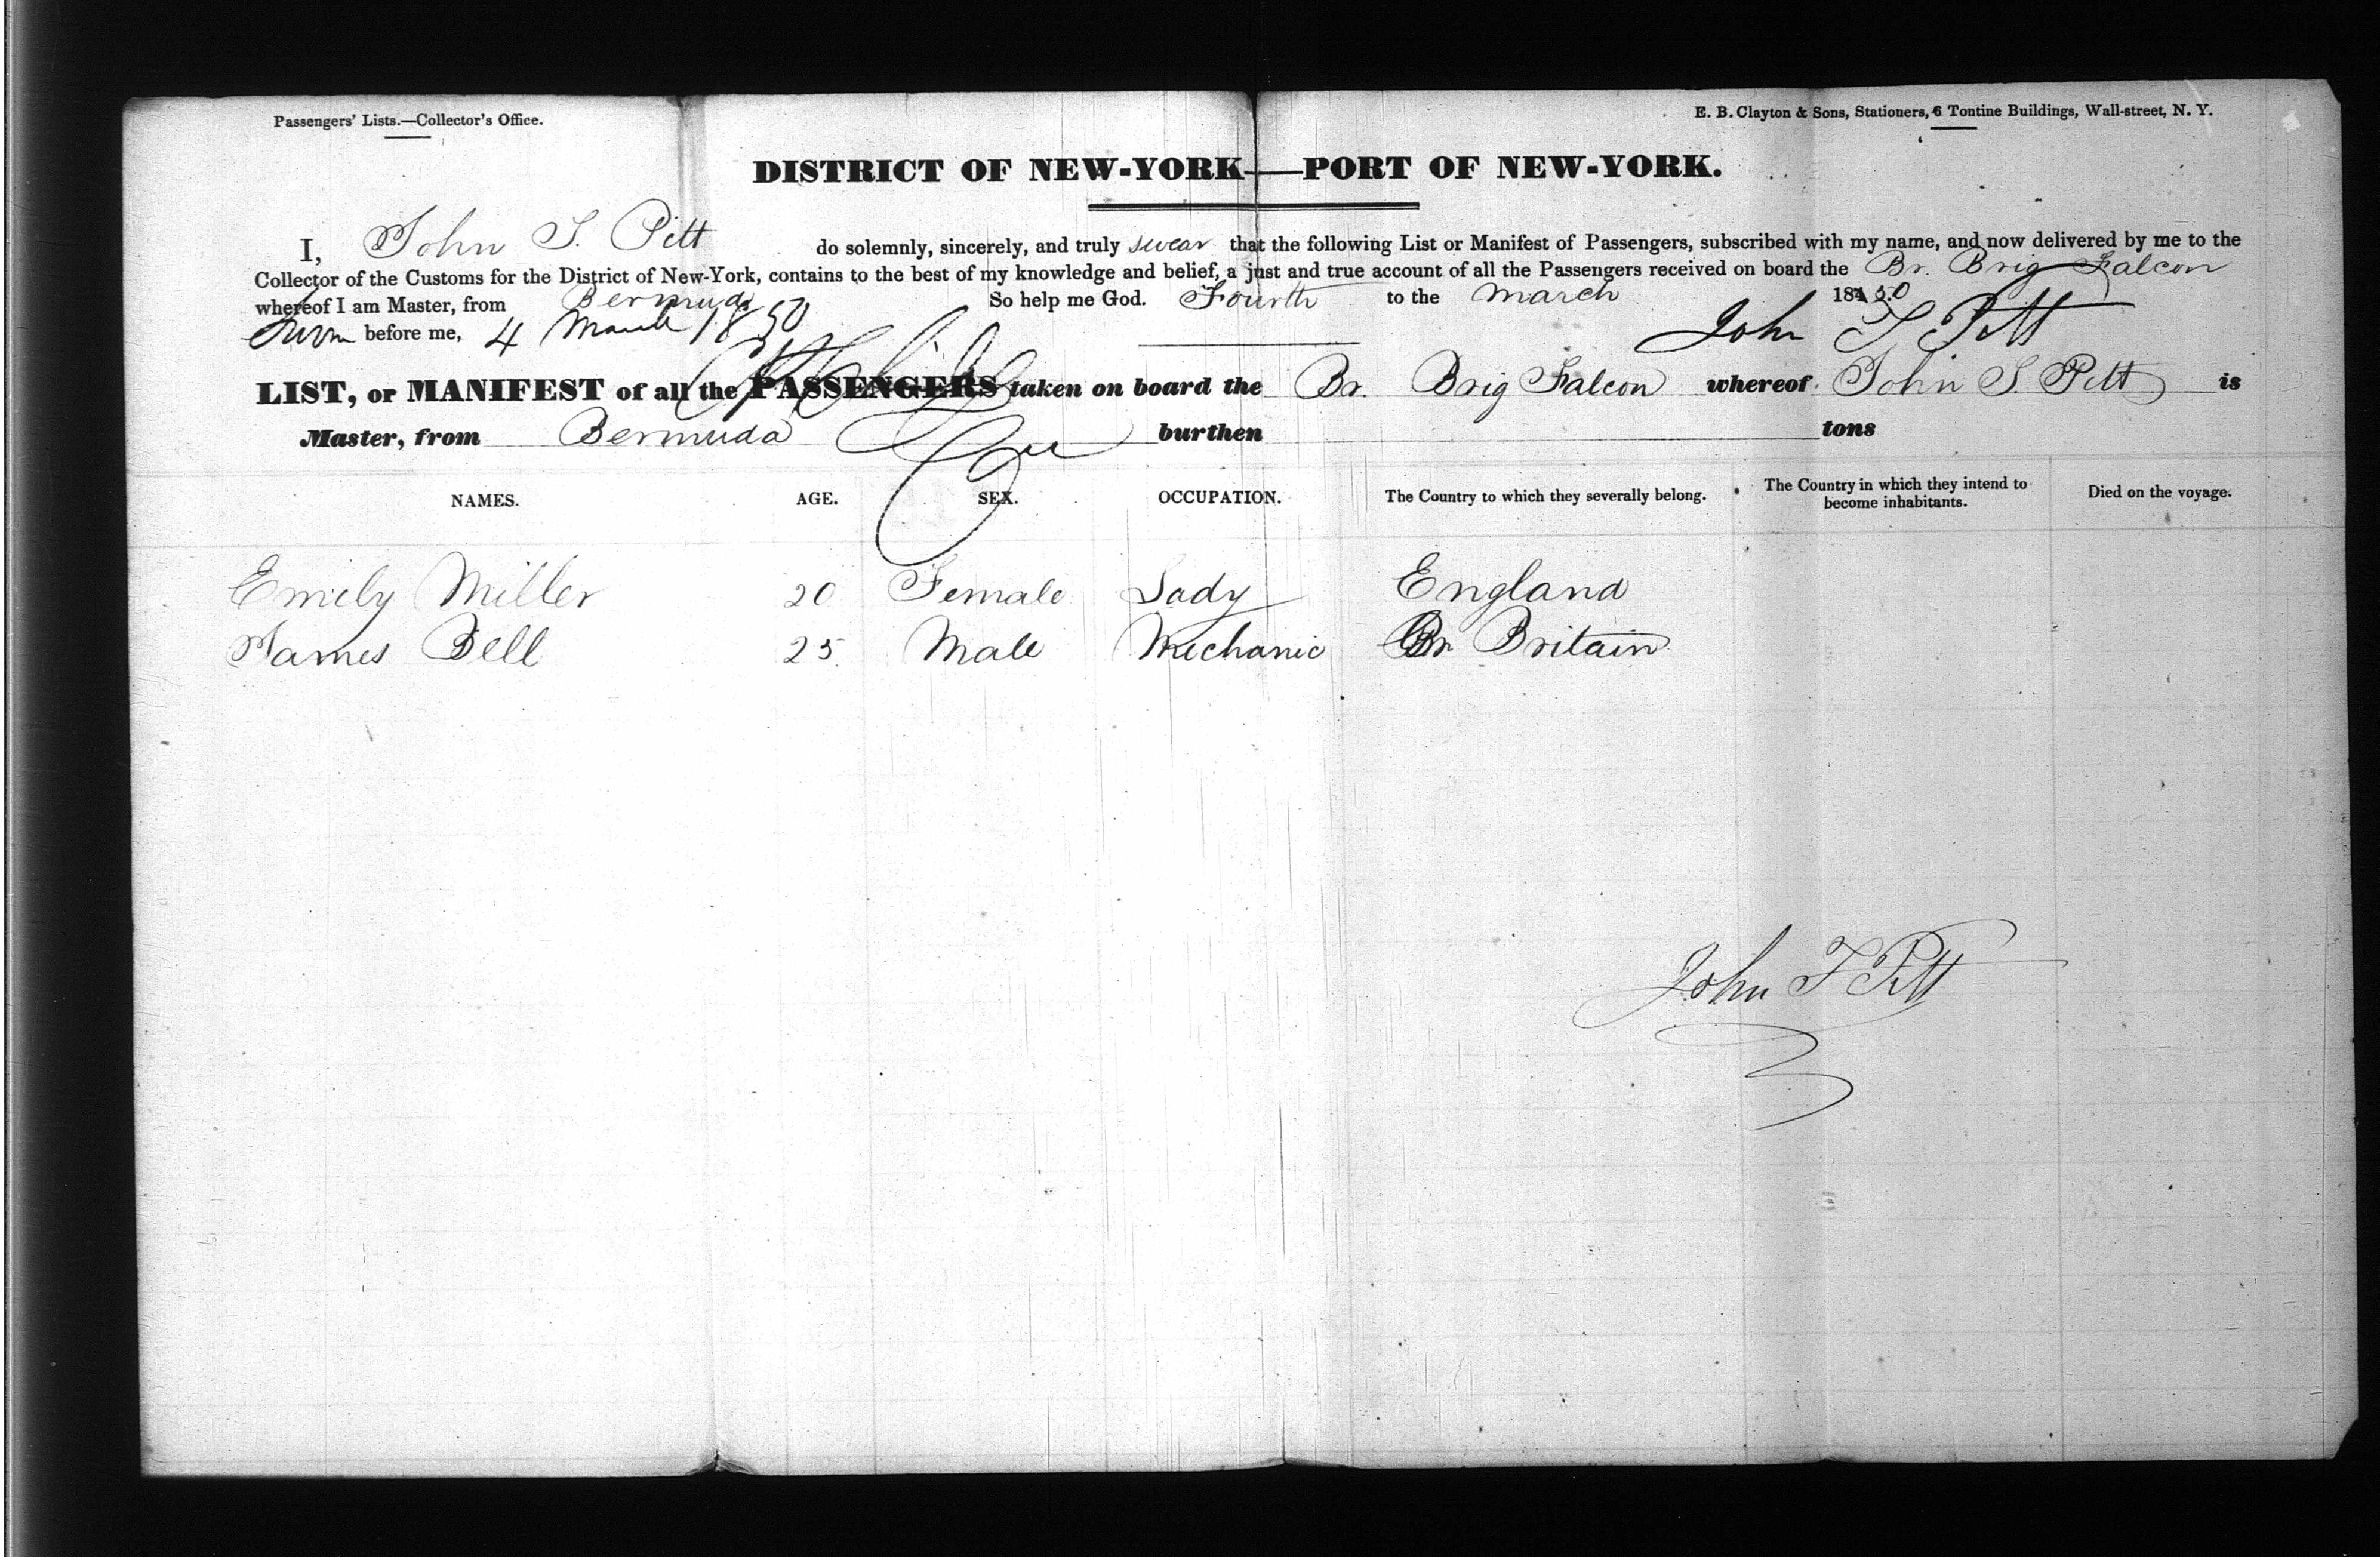 Passengers' Lists.—Collector's Office.
E. B. Clayton & Sons, Stationers, 6 Tontine Buildings, Wall-street, N. Y.
DISTRICT OF NEW-YORK—PORT OF NEW-YORK.
I, John S. Pitt do solemnly, sincerely, and truly swear that the following List or Manifest of Passengers, subscribed with my name, and now delivered by me to the
Collector of the Customs for the District of New-York, contains to the best of my knowledge and belief, a just and true account of all the Passengers received on board the Br. Brig Falcon
whereof I am Master, from Bermuda So help me God. Fourth to the March 18450
Sworn before me, 4 March 1850 John T Pitt
LIST, or MANIFEST of all the PASSENGERS taken on board the Br. Brig Falcon whereof John S. Pitt is
Master, from Bermuda burthen tons
NAMES. AGE. SEX. OCCUPATION. The Country to which they severally belong. The Country in which they intend to become inhabitants. Died on the voyage.
Emily Miller 20 Female Lady England
James Bell 25 Male Mechanic Gr Britain
John T Pitt